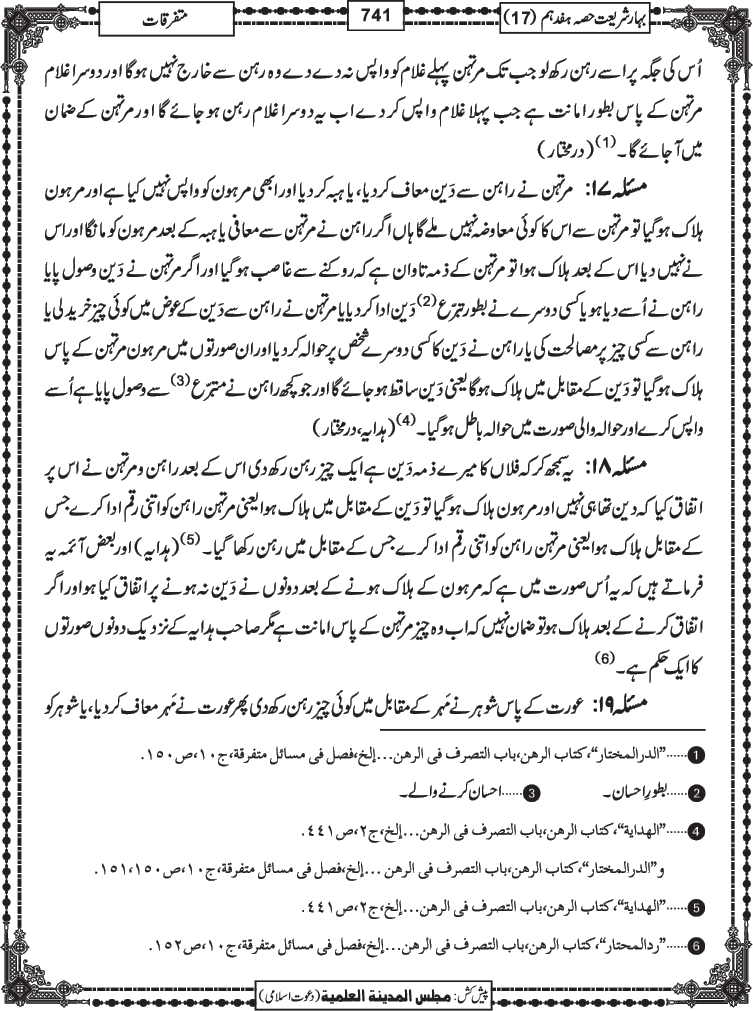 بہارِشریعت حصہ ہفدہم (17)
741
متفرقات
اُس کی جگہ پر اسے رہن رکھ لو جب تک مرتہن پہلے غلام کو واپس نہ دے دے وہ رہن سے خارج نہیں ہوگا اور دوسرا غلام
مرتہن کے پاس بطور امانت ہے جب پہلا غلام واپس کر دے اب یہ دوسرا غلام رہن ہو جائے گا اور مرتہن کے ضمان
میں آجائے گا۔(1) (درمختار)
مسئلہ ۱۷: مرتہن نے راہن سے دَین معاف کر دیا، یا ہبہ کر دیا اور ابھی مرہون کو واپس نہیں کیا ہے اور مرہون
ہلاک ہوگیا تو مرتہن سے اس کا کوئی معاوضہ نہیں ملے گا ہاں اگر راہن نے مرتہن سے معافی یا ہبہ کے بعد مرہون کو مانگا اور اس
نے نہیں دیا اس کے بعد ہلاک ہوا تو مرتہن کے ذمہ تاوان ہے کہ روکنے سے غاصب ہوگیا اور اگر مرتہن نے دَین وصول پایا
راہن نے اُسے دیا ہو یا کسی دوسرے نے بطور تبرّع(2) دَین ادا کر دیا یا مرتہن نے راہن سے دَین کے عوض میں کوئی چیز خرید لی یا
راہن سے کسی چیز پر مصالحت کی یا راہن نے دَین کا کسی دوسرے شخص پر حوالہ کر دیا اور ان صورتوں میں مرہون مرتہن کے پاس
ہلاک ہوگیا تو دَین کے مقابل میں ہلاک ہوگا یعنی دَین ساقط ہو جائے گا اور جو کچھ راہن نے متبرّع(3) سے وصول پایا ہے اُسے
واپس کرے اور حوالہ والی صورت میں حوالہ باطل ہوگیا۔(4) (ہدایہ، درمختار)
مسئلہ ۱۸: یہ سمجھ کر کہ فلاں کا میرے ذمہ دَین ہے ایک چیز رہن رکھ دی اس کے بعد راہن و مرتہن نے اس پر
اتفاق کیا کہ دین تھا ہی نہیں اور مرہون ہلاک ہوگیا تو دَین کے مقابل میں ہلاک ہوا یعنی مرتہن راہن کو اتنی رقم ادا کرے جس
کے مقابل ہلاک ہوا یعنی مرتہن راہن کو اتنی رقم ادا کرے جس کے مقابل میں رہن رکھا گیا۔(5) (ہدایہ) اور بعض آئمہ یہ
فرماتے ہیں کہ یہ اُس صورت میں ہے کہ مرہون کے ہلاک ہونے کے بعد دونوں نے دَین نہ ہونے پر اتفاق کیا ہو اور اگر
اتفاق کرنے کے بعد ہلاک ہو تو ضمان نہیں کہ اب وہ چیز مرتہن کے پاس امانت ہے مگر صاحب ہدایہ کے نزدیک دونوں صورتوں
کا ایک حکم ہے۔(6)
مسئلہ ۱۹: عورت کے پاس شوہر نے مَہر کے مقابل میں کوئی چیز رہن رکھ دی پھر عورت نے مَہر معاف کر دیا، یا شوہر کو
1......"الدرالمختار"،کتاب الرهن،باب التصرف فى الرهن...إلخ،فصل فى مسائل متفرقة،ج١٠،ص١٥٠.
2......بطورِ احسان۔ 3......احسان کرنے والے۔
4......"الهداية"،كتاب الرهن،باب التصرف فى الرهن...إلخ،ج٢،ص٤٤١.
و"الدرالمختار"،كتاب الرهن،باب التصرف فى الرهن ...إلخ،فصل فى مسائل متفرقة،ج١٠،ص١٥٠،١٥١.
5......"الهداية"،كتاب الرهن،باب التصرف فى الرهن...إلخ،ج٢،ص٤٤١.
6......"ردالمحتار"،كتاب الرهن،باب التصرف فى الرهن...إلخ،فصل فى مسائل متفرقة،ج١٠،ص١٥٢.
پیش کش: مجلس المدينة العلمية (دعوت اسلامی)